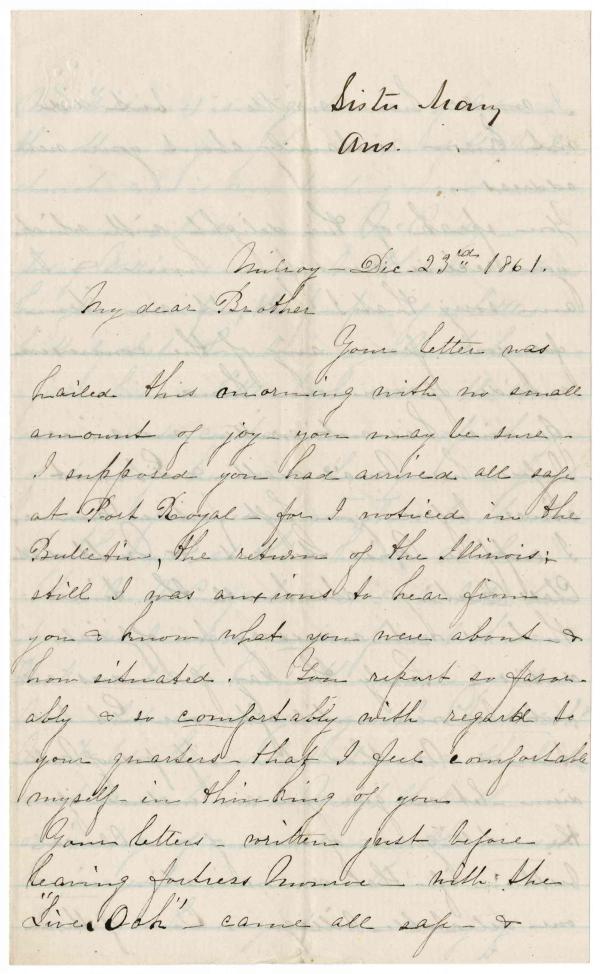 Sister Mary
Ans.
Milroy - Dec. 23rd 1861.
My dear Brother
Your letter was
hailed this morning with no small
amount of joy - you may be sure -
I supposed you had arrived all safe
at Port Royal - for I noticed in the
Bulletin, the return of the Illinois;
still I was anxious to hear from
you & know what you were about - &
how situated. You report so favor-
ably & so comfortably with regard to
your quarters - that I feel comfortable
myself - in thinking of you
Your letters - written just before
leaving fortress Monroe - with the
"Live Oak" - came all safe - &